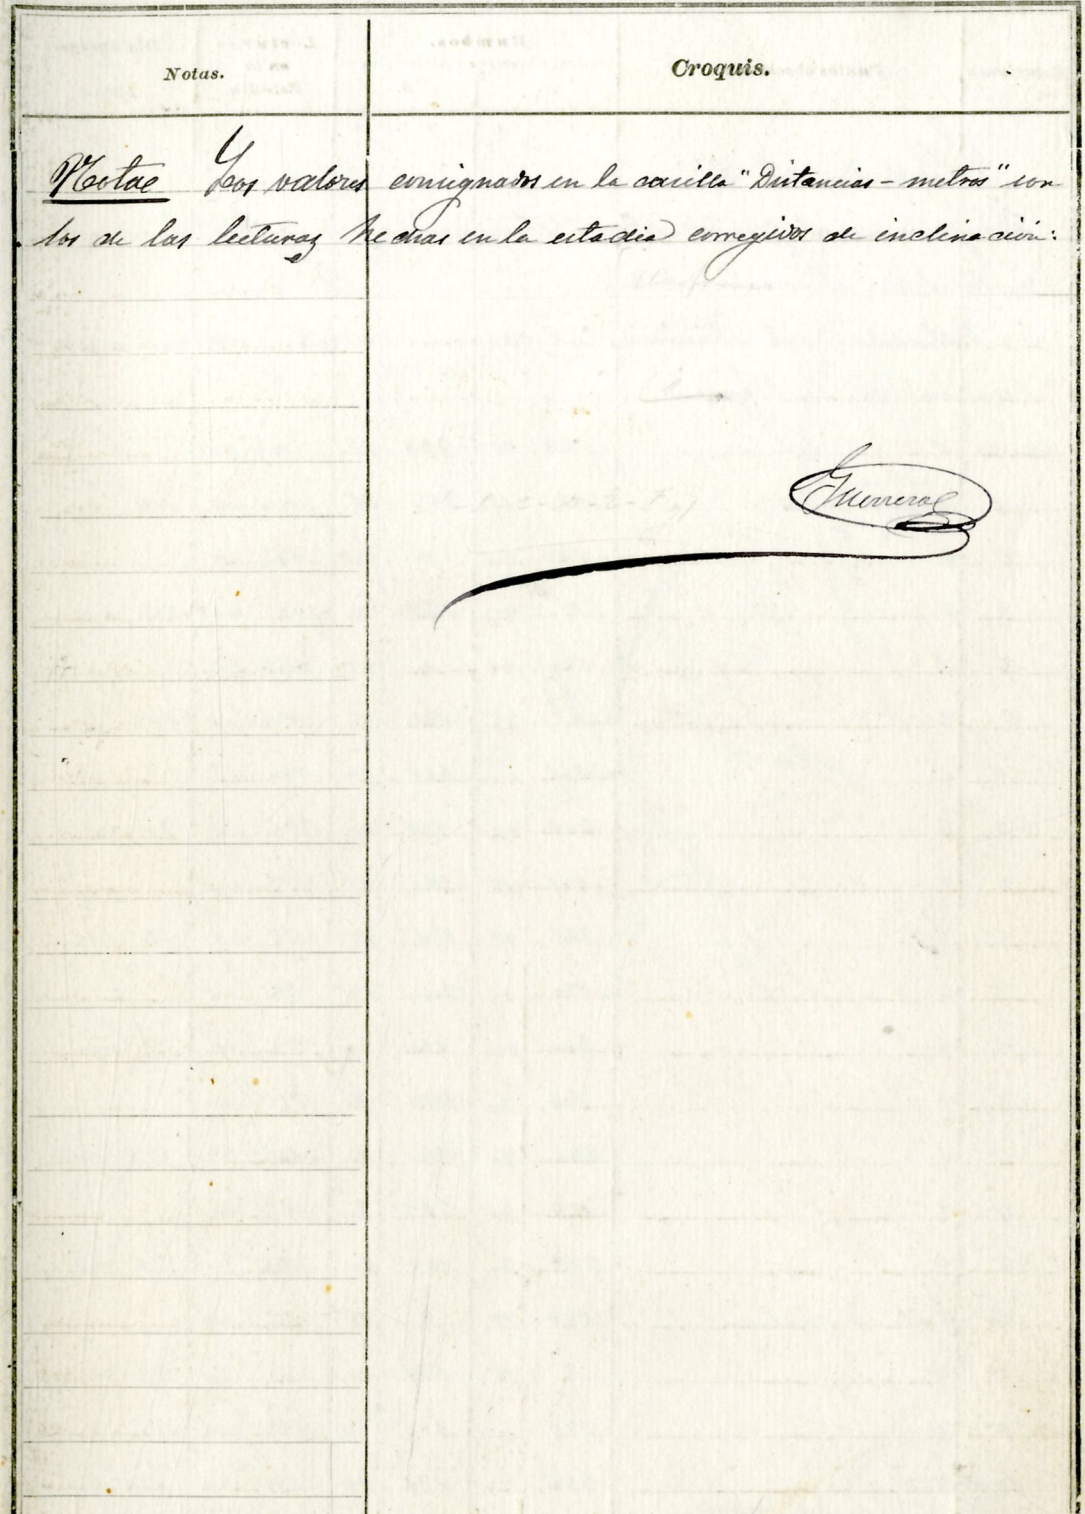 Notas.
Croquis.
Nota Los valores consignados en la casilla "Distancias - metros" son
los de las lecturas hechas en la estadia corregidos de inclinación:
Guerrero